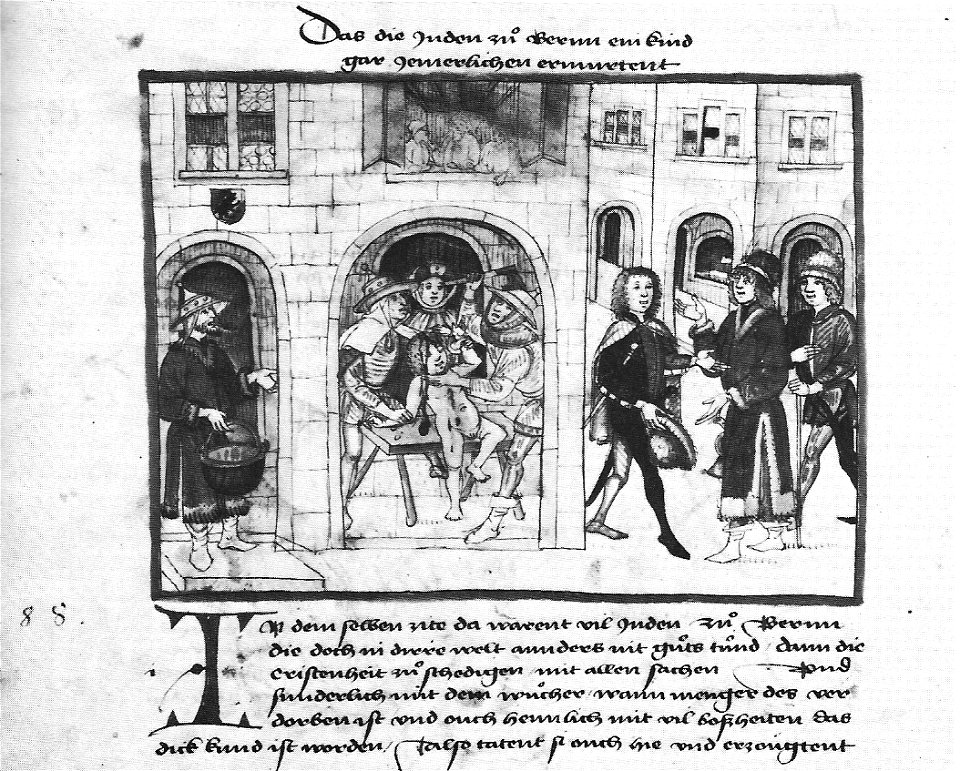 Das die Juden zů Bernn ein kind
gar jemerlichen ermurtent
85.
IN dem selben zite da warent vil Juden zů Bernn
die doch in dirre welt annders nit gůts tůnd / dann die
cristenheit zů schedigen mit allen sachen Und
sunderlich mit dem wůcher wann menger des ver
dorben ist vnd ouch heimlich mit vil boßheiten das
dick kund ist worden / Also tatent si ouch hie vnd erzöugtent